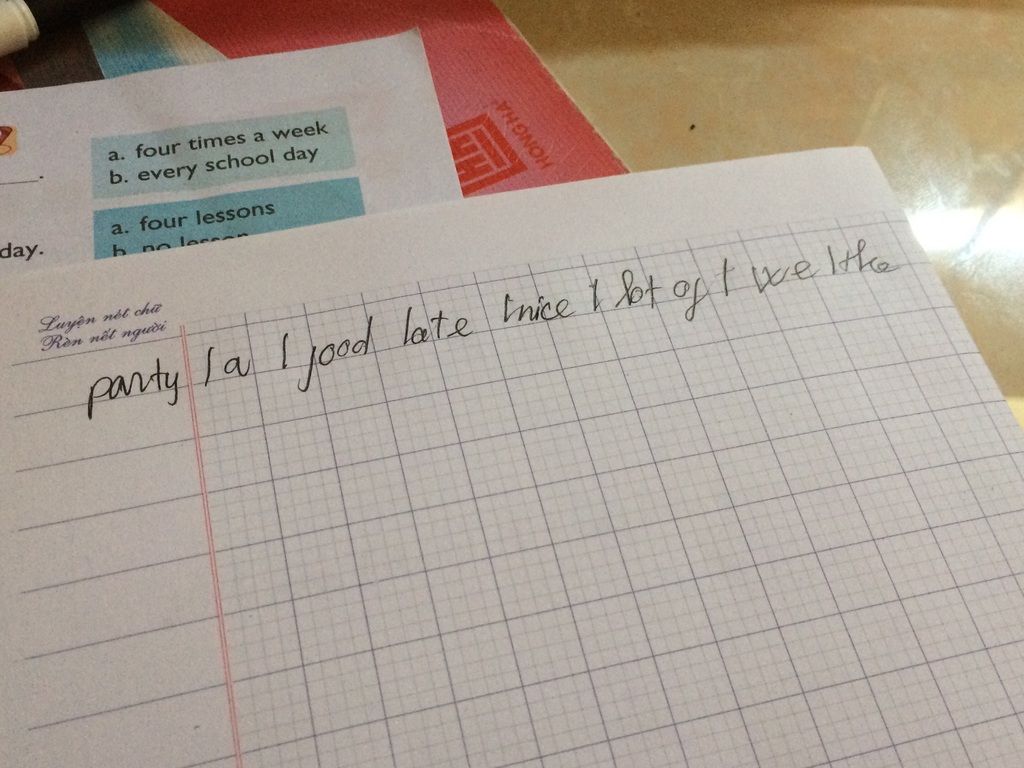 a. four times a week
b. every school day
a. four lessons
b. no lesson
day.
HONG HA
Luyện nét chữ
Rèn nết người
party / a / good late / nice / lot of / we / the